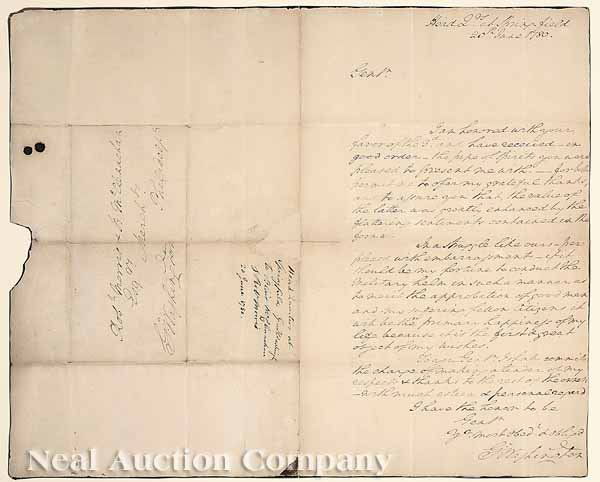 Head Qrs at Springfield
20th June 1780.
Gentn.
I am honored with your
favor of the 3d and have received — in
good order — the pipe of spirits you were
pleased to present me with. — for both
permit me to offer my grateful thanks,
and to assure you that the value of
the latter was greatly enhanced by the
flattering sentiments contained in the
former.
In a struggle like ours — per
plexed with embarrassment — if it
should be my fortune to conduct the
Military helm in such a manner as
to merit the approbation of good men
and my suffering fellow citizens it
will be the primary happiness of my
life because it is the first & great
object of my wishes.
To you Gentn. I shall commit
the charge of making a tender of my
respects & thanks to the rest of the owners
— with much esteem & personal regard
I have the honor to be
Gentn.
Yr. most Obedt. & obligd
Go: Washington
Robt. Morris &
Esqrs.
Merchts.
Philadelpa.
Go: Washington
Head Quarters at
Springfield
& Robt Morris
20 June 1780
Neal Auction Company